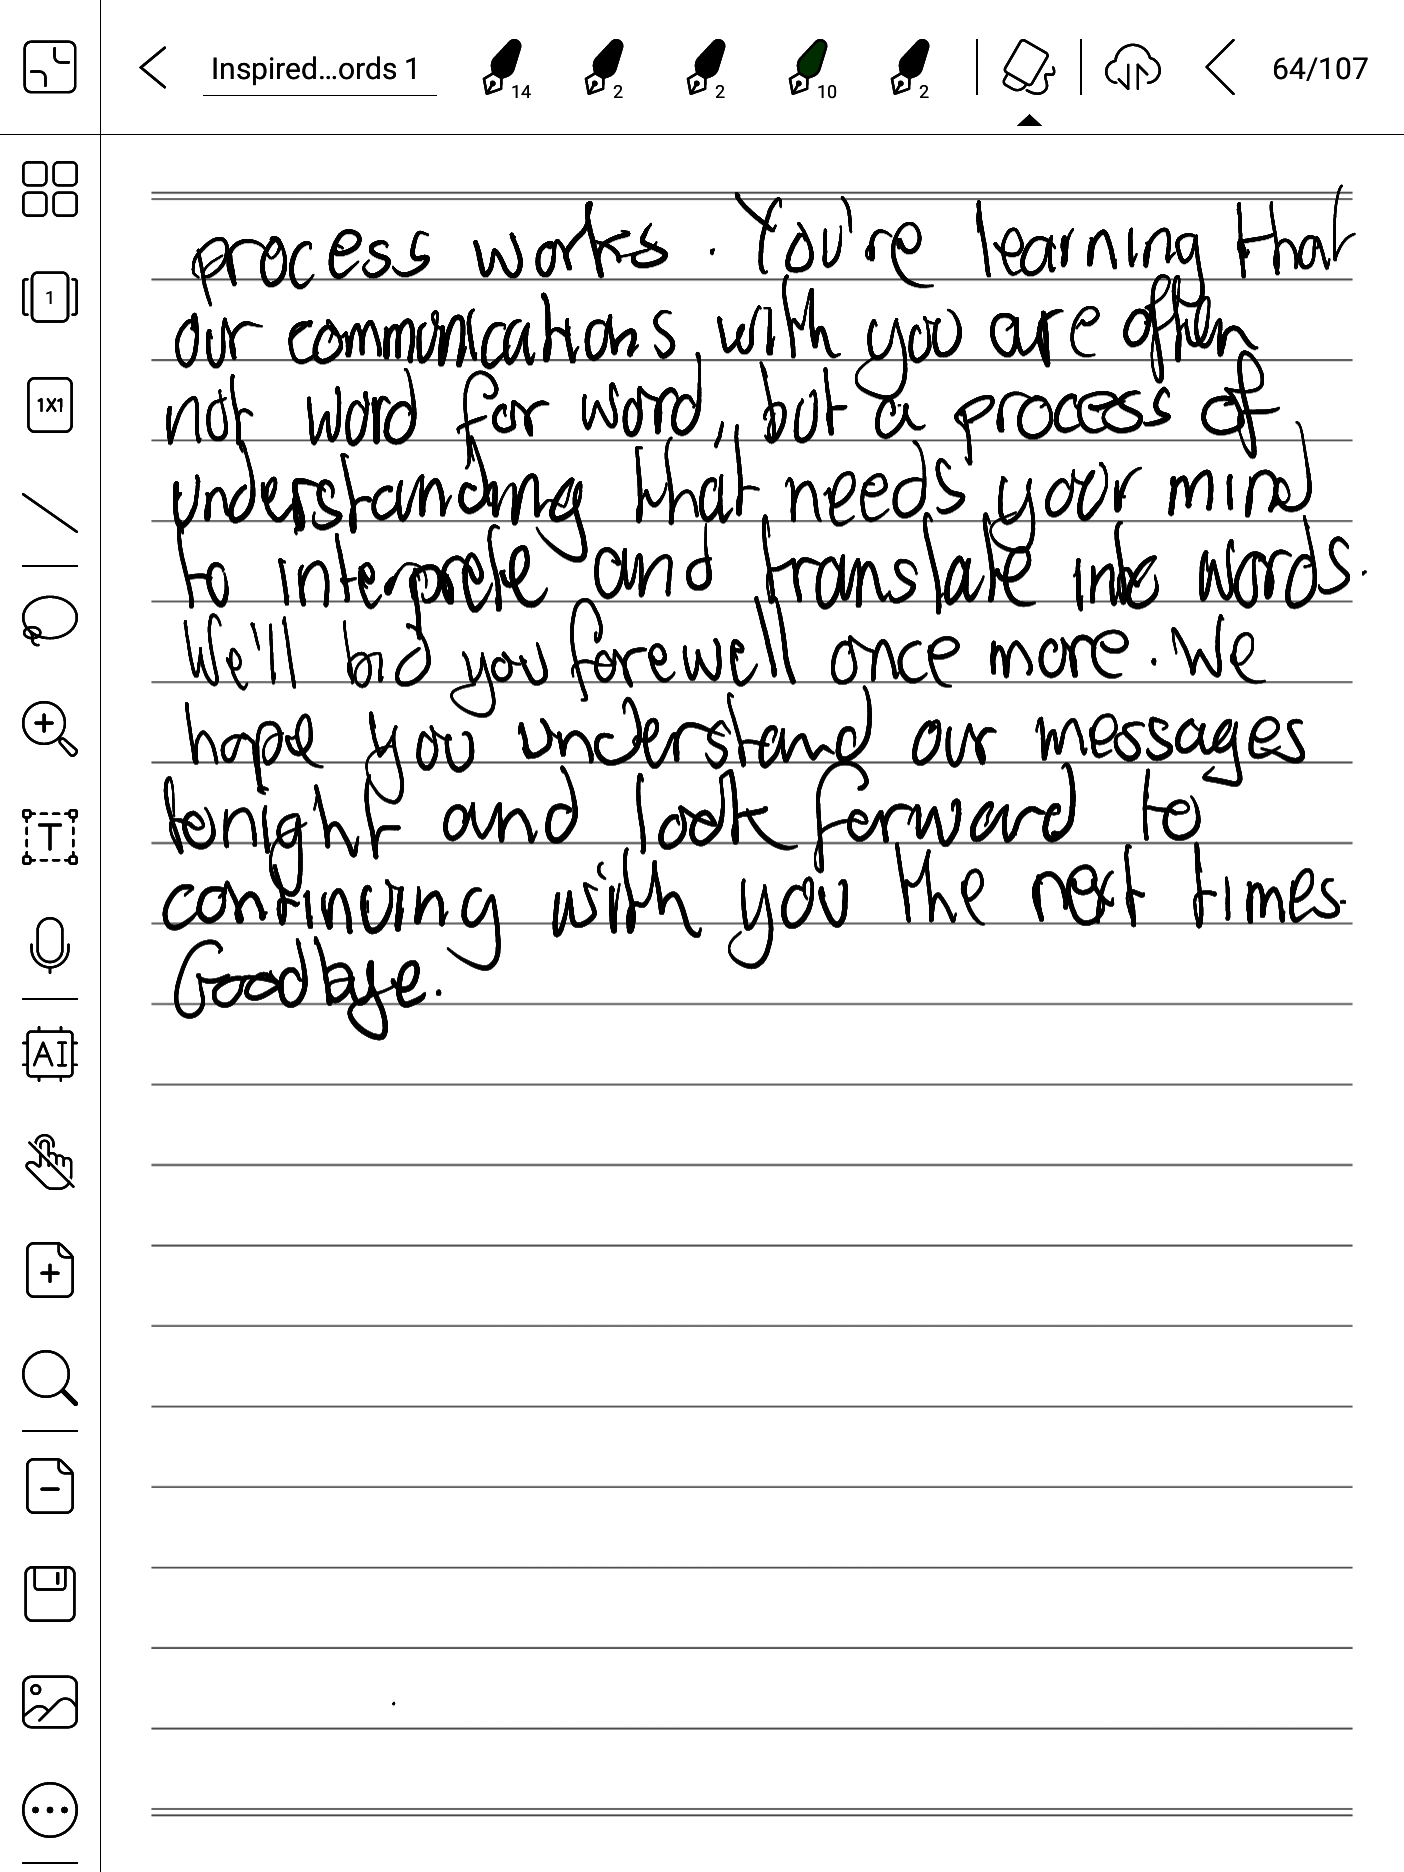 Inspired...ords 1
14
2
2
10
2
64/107
1
1X1
T
AI
process works. You're learning that
our communications with you are often
not word for word, but a process of
understanding that needs your mind
to interprete and translate into words.
We'll bid you farewell once more. We
hope you understand our messages
tonight and look forward to
continuing with you the next times.
Goodbye.